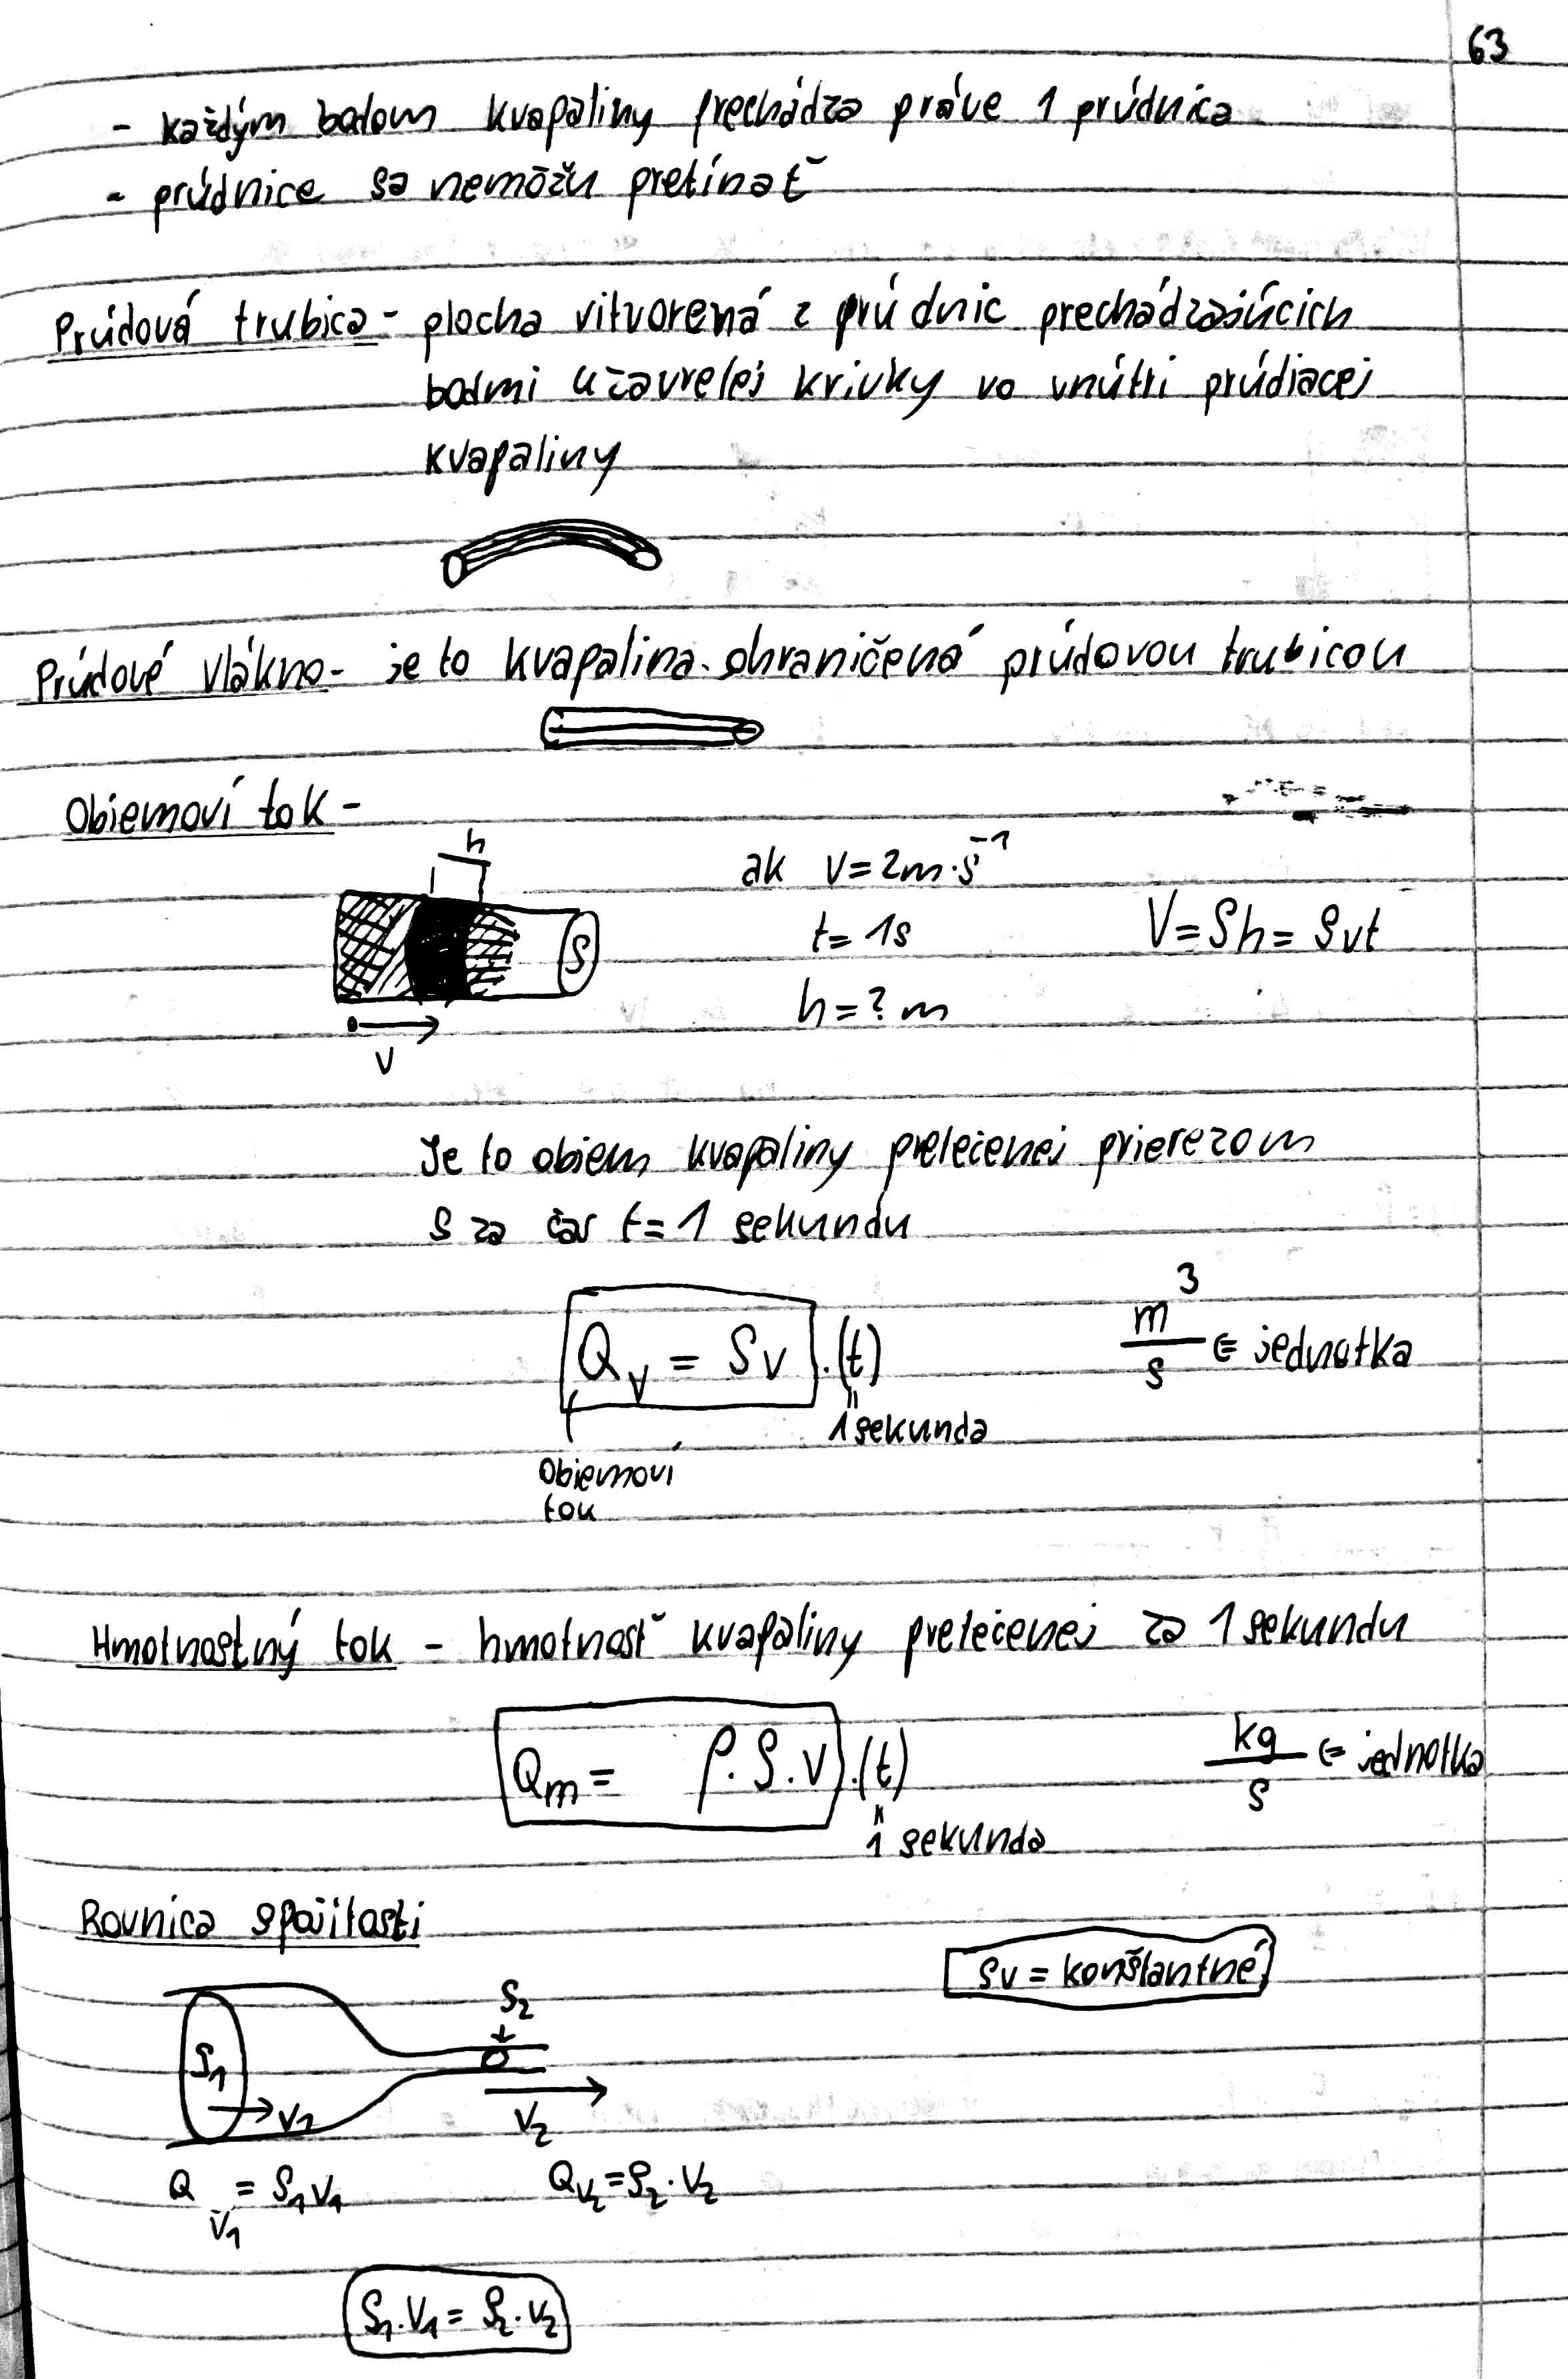 63
- každým bodom kvapaliny prechádza práve 1 prúdnica
- prúdnice sa nemôžu pretínať
Prúdová trubica - plocha vitvorená z prúdnic prechádzajúcich
bodmi uzavretej krivky vo vnútri prúdiacej
kvapaliny
Prúdové vlákno - je to kvapalina ohraničená prúdovou trubicou
Objemoví tok -
h
ak v = 2m·s⁻¹
t = 1s
V = Sh = Svt
S
h = ? m
v
Je to objem kvapaliny pretečenej prierezom
S za čas t = 1 sekundu
Q_v = Sv .(t)
m³/s ∈ jednotka
1 sekunda
Objemoví
tok
Hmotnostný tok - hmotnosť kvapaliny pretečenej za 1 sekundu
Q_m = ρ.S.v .(t)
kg/s ∈ jednotka
1 sekunda
Rovnica spojitosti
Sv = konštantné
S₂
S₁
v₁
v₂
Q_v₁ = S₁v₁
Q_v₂ = S₂·v₂
S₁.v₁ = S₂.v₂